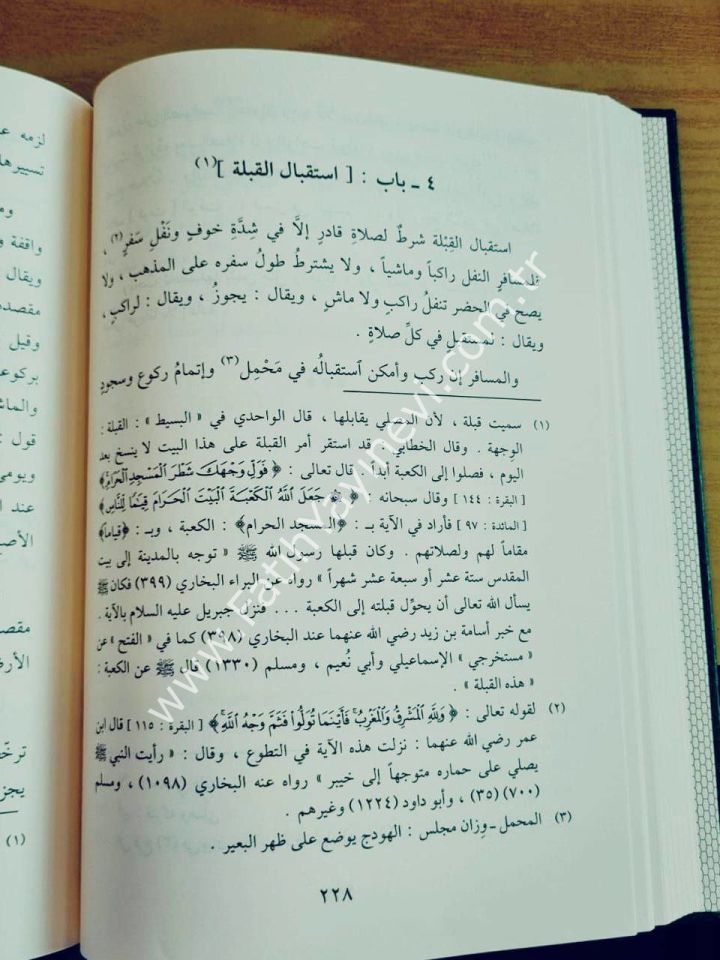 ٤ ـ باب : [ استقبال القبلة ](١)
استقبال القِبْلة شرطٌ لصلاةِ قادرٍ إلاَّ في شِدَّةِ خوفٍ ونَفْلِ سَفَرٍ(٢) ،
فلمسافرٍ النفل راكباً وماشياً ، ولا يشترطُ طولُ سفره على المذهب ، ولا
يصح في الحضر تنفلُ راكبٍ ولا ماشٍ , ويقال : يجوزُ ، ويقال : لراكبٍ ,
ويقال : لمستقبلٍ في كلِّ صلاةٍ .
والمسافر إن ركب وأمكن ٱستقبالُه في مَحْمِل(٣) وإتمامُ ركوع وسجودٍ
(١) سميت قبلة ، لأن المصلي يقابلها ، قال الواحدي في « البسيط » : القبلة :
الوِجهة . وقال الخطابي : قد استقر أمر القبلة على هذا البيت لا ينسخ بعد
اليوم ، فصلوا إلى الكعبة أبداً . قال تعالى : ﴿ فَوَلِّ وَجْهَكَ شَطْرَ الْمَسْجِدِ الْحَرَامِ ﴾
[ البقرة : ١٤٤ ] وقال سبحانه : ﴿ جَعَلَ اللَّهُ الْكَعْبَةَ الْبَيْتَ الْحَرَامَ قِيَامًا لِلنَّاسِ ﴾
[ المائدة : ٩٧ ] فأراد في الآية بـ : ﴿المسجد الحرام﴾ : الكعبة ، وبـ : ﴿قياماً﴾
مقاماً لهم ولصلاتهم . وكان قبلها رسول الله ﷺ « توجه بالمدينة إلى بيت
المقدس ستة عشر أو سبعة عشر شهراً » رواه عن البراء البخاري (٣٩٩) فكان ﷺ
يسأل الله تعالى أن يحوِّل قبلته إلى الكعبة ... فنزل جبريل عليه السلام بالآية .
مع خبر أسامة بن زيد رضي الله عنهما عند البخاري (٣٩٨) كما في « الفتح » عن
« مستخرجي » الإسماعيلي وأبي نُعيم ، ومسلم (١٣٣٠) قال ﷺ عن الكعبة :
« هذه القبلة » .
(٢) لقوله تعالى : ﴿ وَلِلَّهِ الْمَشْرِقُ وَالْمَغْرِبُ فَأَيْنَمَا تُوَلُّوا فَثَمَّ وَجْهُ اللَّهِ ﴾ [ البقرة : ١١٥ ] قال ابن
عمر رضي الله عنهما : نزلت هذه الآية في التطوع ، وقال : « رأيت النبي ﷺ
يصلي على حماره متوجهاً إلى خيبر » رواه عنه البخاري (١٠٩٨) ، ومسلم
(٧٠٠) (٣٥) ، وأبو داود (١٢٢٤) وغيرهم .
(٣) المحمل ـ وِزان مجلس : الهودج يوضع على ظهر البعير .
٢٢٨
لزمه
تسييرها
واقفة و
ويقال
مقصده
وقيل
بركوع
والماش
قول :
ويومى
عند ا
الأص
مقصد
الأرض
ترخّ
يجز
(١)
www.fatihyayinevi.com.tr